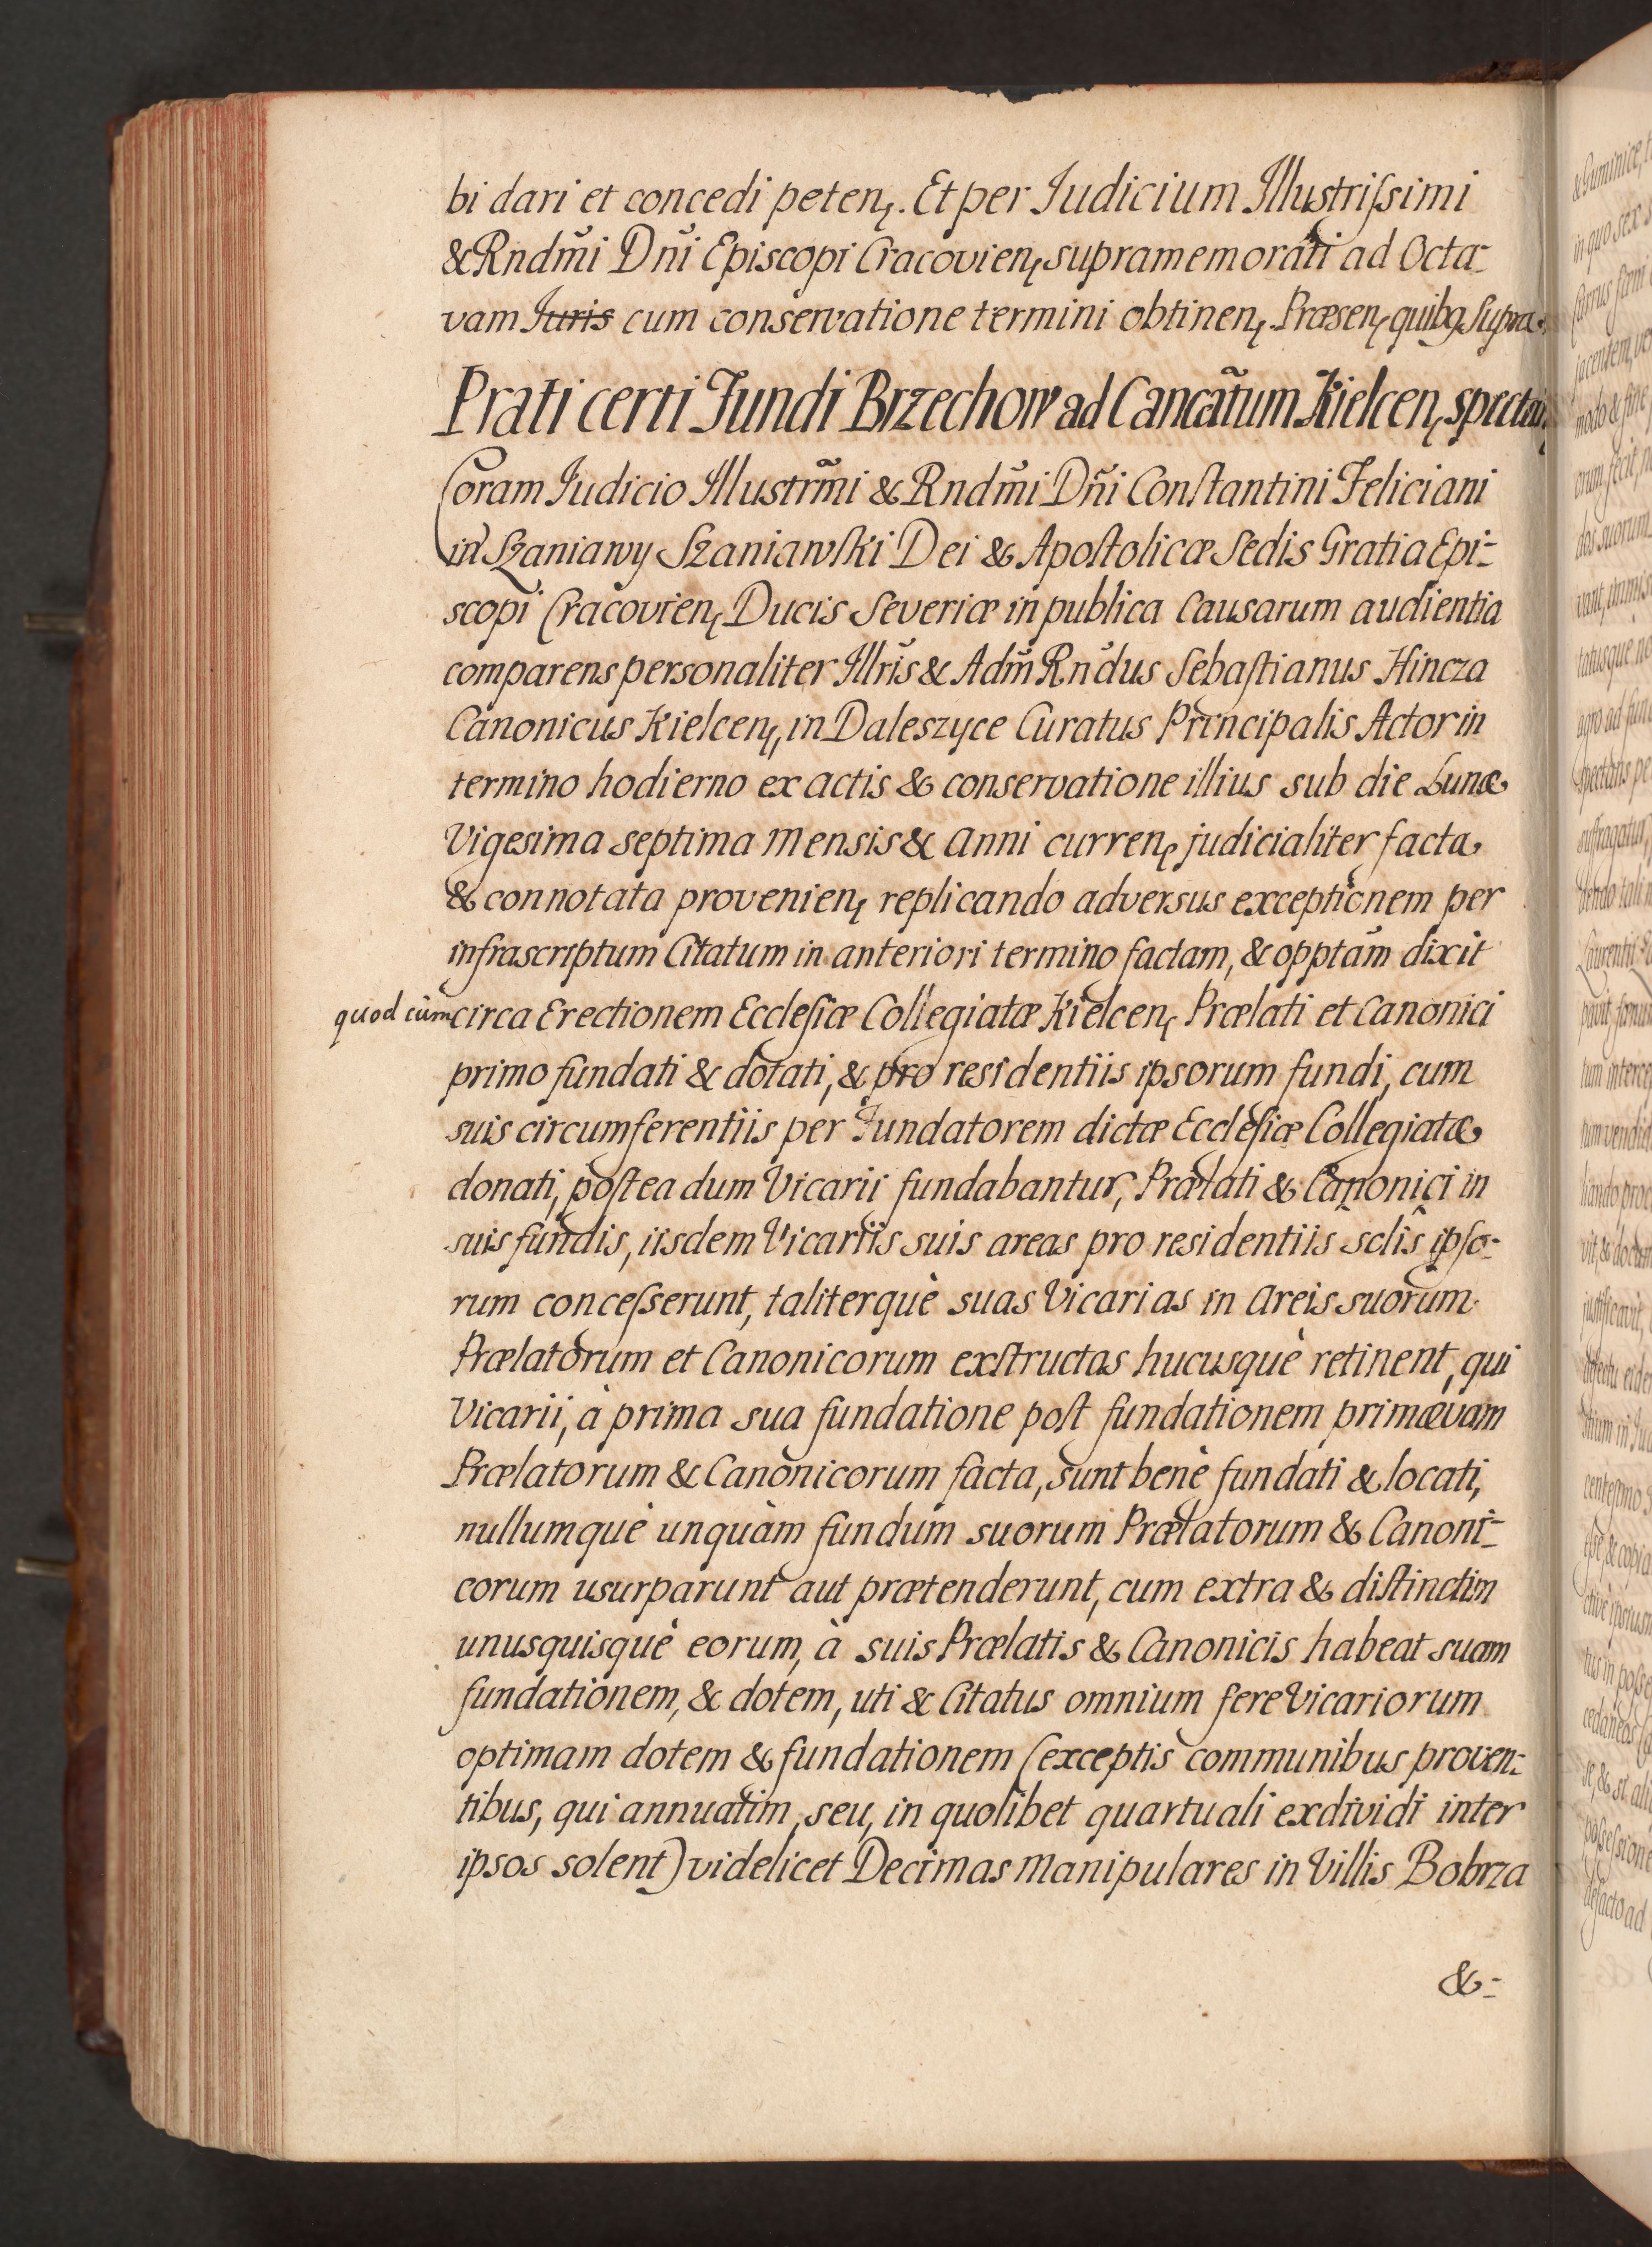 bi dari et concedi peten. Et per Iudicium Illustrissimi
& Rndmi Dni Episcopi Cracovien, supramemorati ad Octa-
vam Iuris cum conservatione termini obtinen, Præsen, quibg supra.
Prati certi Fundi Brzechow ad Cancatum Kielcen, spectan
Coram Iudicio Illustrmi & Rndmi Dñi Constantini Feliciani
in Szaniawy Szaniawski Dei & Apostolicæ Sedis Gratia Epi-
scopi Cracovien, Ducis Severiæ in publica causarum audientia
comparens personaliter Illris & Adm Rndus Sebastianus Hincza
Canonicus Kielcen, in Daleszyce Curatus Principalis Actor in
termino hodierno ex actis & conservatione illius sub die Lunæ
Vigesima septima mensis & anni curren, judicialiter facta
& connotata provenien, replicando adversus exceptionem per
infrascriptum Citatum in anteriori termino factam, & opptam dixit
quod cùm circa Erectionem Ecclesiæ Collegiatæ Kielcen, Prælati et Canonici
primo fundati & dotati, & pro residentiis ipsorum fundi, cum
suis circumferentiis per Fundatorem dictæ Ecclesiæ Collegiatæ
donati, postea dum Vicarii fundabantur, Prælati & Canonici in
suis fundis, iisdem Vicariis suis areas pro residentiis solis ipso-
rum concesserunt, taliterquè suas Vicarias in areis suorum
Prælatorum et Canonicorum exstructas hucusquè retinent, qui
Vicarii, à prima sua fundatione post fundationem primævam
Prælatorum & Canonicorum facta, sunt benè fundati & locati,
nullumquè unquàm fundum suorum Prælatorum & Canoni-
corum usurparunt aut prætenderunt, cum extra & distinctim
unusquisquè eorum, à suis Prælatis & Canonicis habeat suam
fundationem, & dotem, uti & Citatus omnium fere Vicariorum
optimam dotem & fundationem (exceptis communibus proven-
tibus, qui annuatim, seu, in quolibet quartuali exdividi inter
ipsos solent) videlicet Decimas manipulares in Villis Bobrza
&-